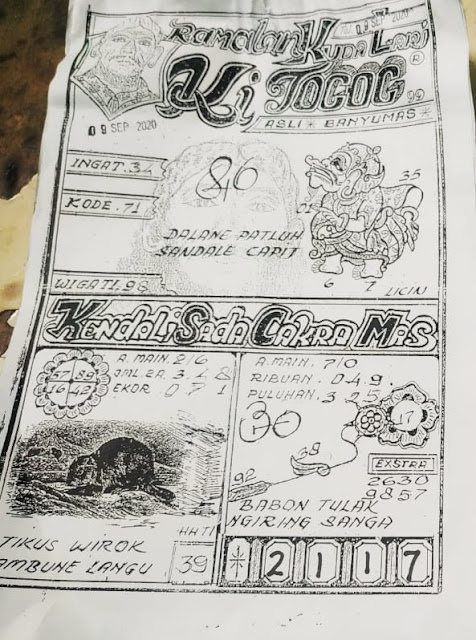 09 SEP 2020
Ramalan Kuda Lari
Ki Togog
®
99
ASLI * BANYUMAS
09 SEP 2020
INGAT. 34
86
35
KODE. 71
DALANE PATLUH
SANDALE CAPIT
WIGATI. 98
6 7 LICIN
Kendali Sada Cakra Mas
A. MAIN 2/6
JML.2A. 3 4 8
EKOR 0 7 1
57 89
16 42
TIKUS WIROK
AMBUNE LANGU
HHTI
39
A. MAIN. 7/0
RIBUAN. 0 4 9.
PULUHAN. 3 2 5
30
17
38
92
EXSTRA
2630
9857
BABON TULAK
NGIRING SANGA
* 2 1 1 7